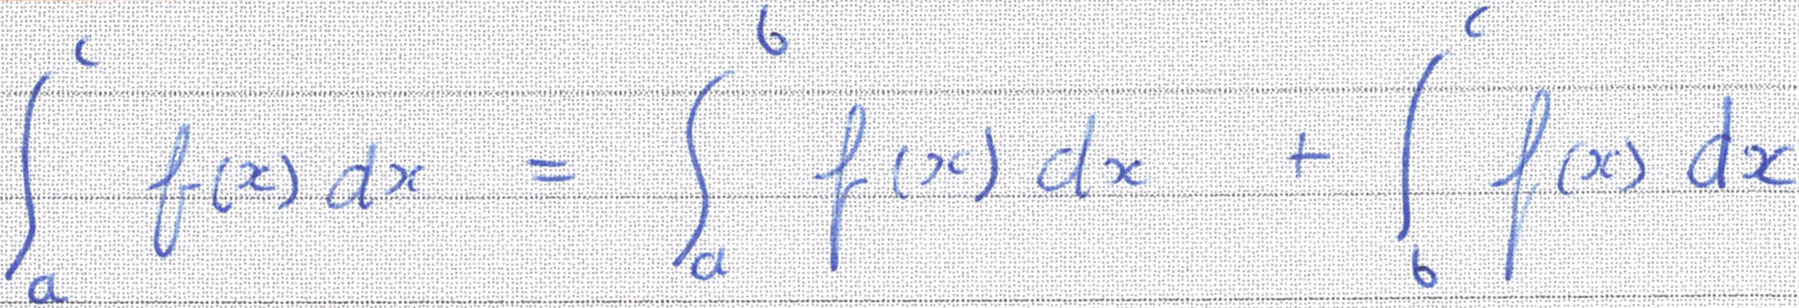 ∫_a^c f(x) dx = ∫_a^b f(x) dx + ∫_b^c f(x) dx